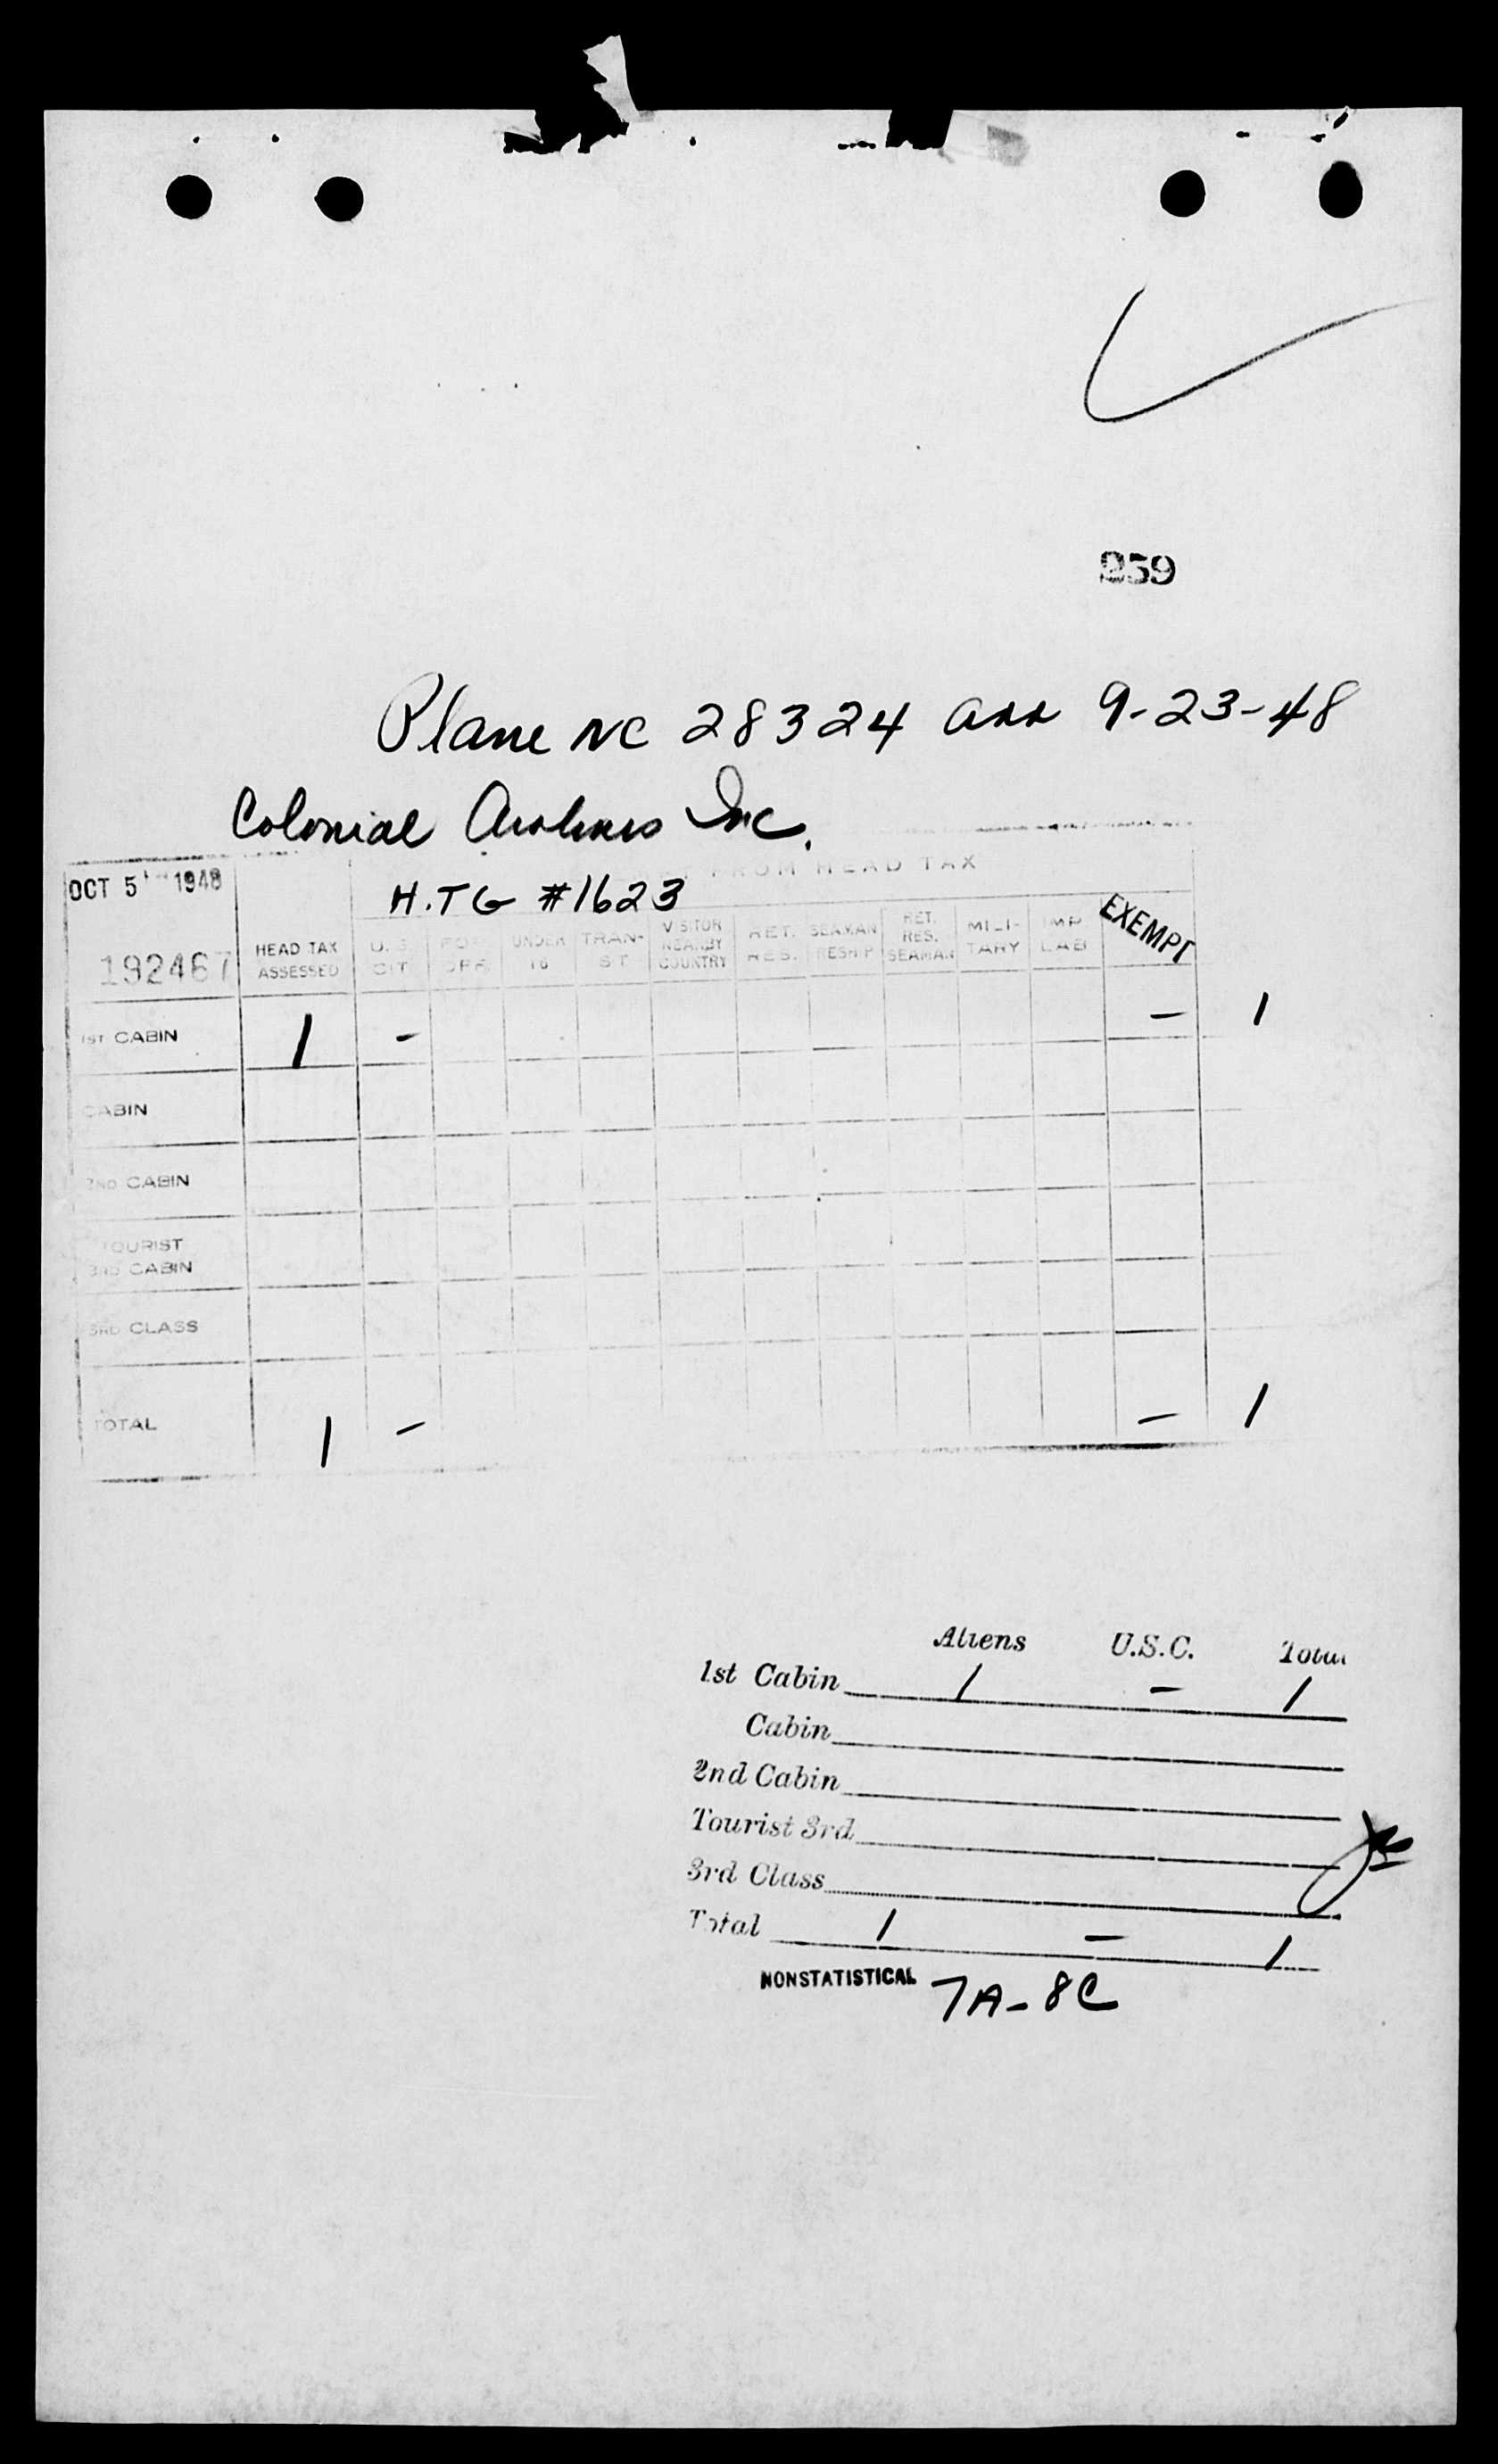 259
Plane NC 28324 arr 9-23-48
Colonial Airlines Inc.
FROM HEAD TAX
OCT 5 1948
H.TG #1623
192467
HEAD TAX ASSESSED
U.S. CIT
FOR OFF.
UNDER 16
TRANSIT
VISITOR NEARBY COUNTRY
RET. RES.
SEAMAN RESHIP
RET. RES. SEAMAN
MILI-TARY
IMP LAB
EXEMPT
1ST CABIN 1 - - 1
CABIN
2ND CABIN
TOURIST
3RD CABIN
3RD CLASS
TOTAL 1 - - 1
Aliens U.S.C. Total
1st Cabin 1 - 1
Cabin
2nd Cabin
Tourist 3rd
3rd Class
Total 1 - 1
NONSTATISTICAL 7A-8C